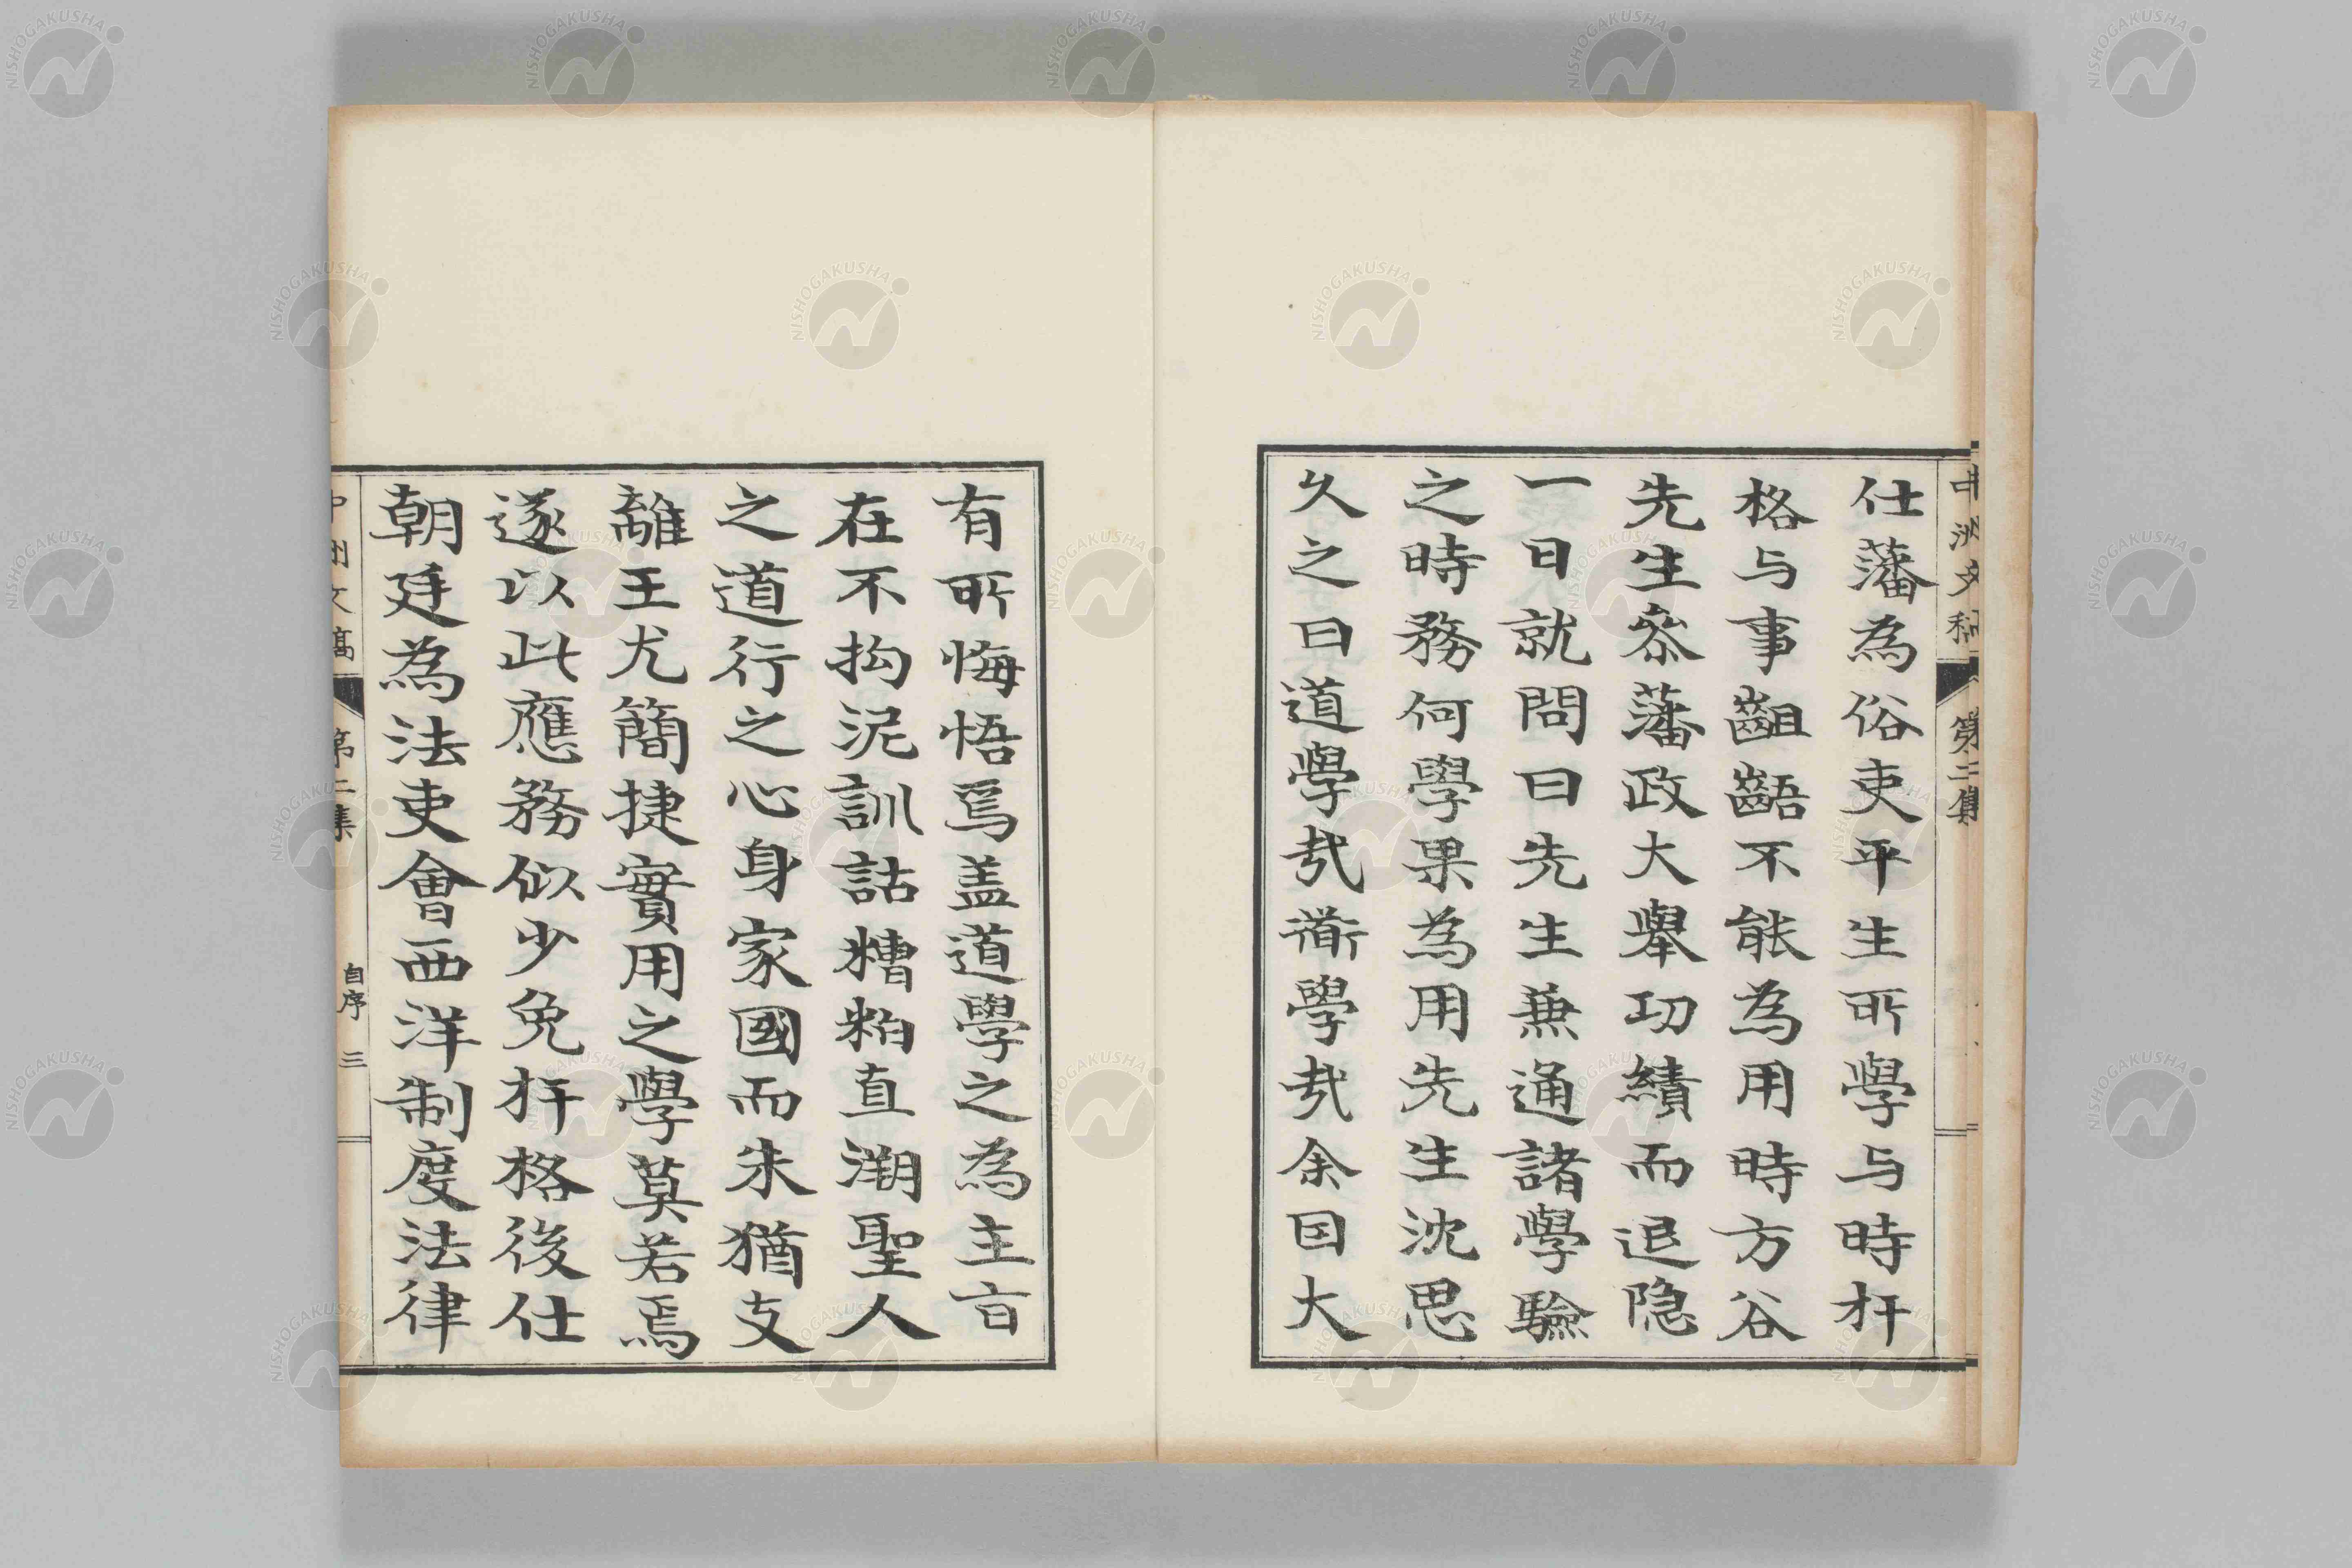 中洲文稿 第二集
仕藩為俗吏平生所學与時扞
格与事齟齬不能為用時方谷
先生叅藩政大擧功績而退隐
一日就問曰先生兼通諸學驗
之時務何學果為用先生沈思
久之曰道學㢤道學㢤余因大
有所悔悟焉盖道學之為主旨
在不拘泥訓詁糟粕直溯聖人
之道行之心身家國而朱猶支
離王尤簡捷實用之學莫若焉
遂以此應務似少免扞格後仕
朝廷為法吏會西洋制度法律
中洲文稿 第二集 自序 三
NISHOGAKUSHA